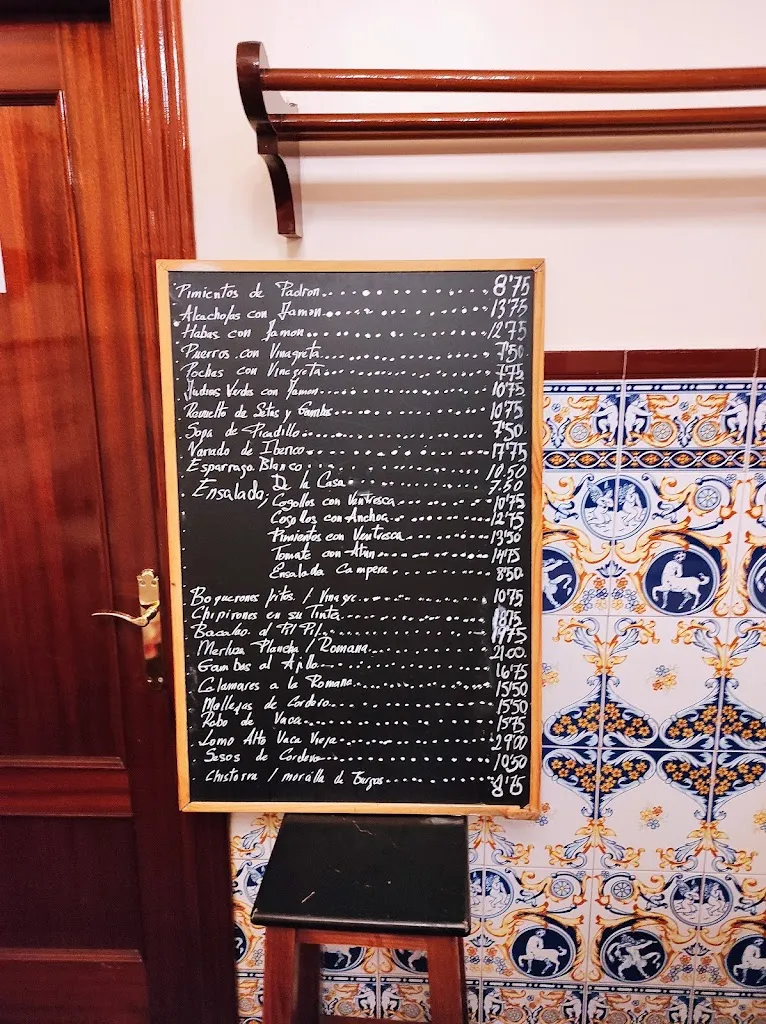 Pimientos de Padron 8'75
Alcachofas con Jamon 13'75
Habas con Jamon 12'75
Puerros con Vinagreta 7'50
Pochas con Vinagreta 7'75
Judias Verdes con Jamon 10'75
Revuelto de Setas y Gambas 10'75
Sopa de Picadillo 7'50
Variado de Iberico 17'75
Esparrago Blanco 10.50
Ensalada; De la Casa 7.50
Cogollos con Ventresca 10'75
Cogollos con Anchoa 12'75
Pimientos con Ventresca 13'50
Tomate con Atun 14'75
Ensalada Campera 8'50
Boquerones fritos / Vinagre 10'75
Chipirones en su Tinta 18'75
Bacalao al Pil Pil 19'75
Merluza Plancha / Romana 21'00
Gambas al Ajillo 16'75
Calamares a la Romana 15'50
Mollejas de Cordero 15'50
Rabo de Vaca 15'75
Lomo Alto Vaca Vieja 29'00
Sesos de Cordero 10'50
Chistorra / morcilla de Burgos 8'75